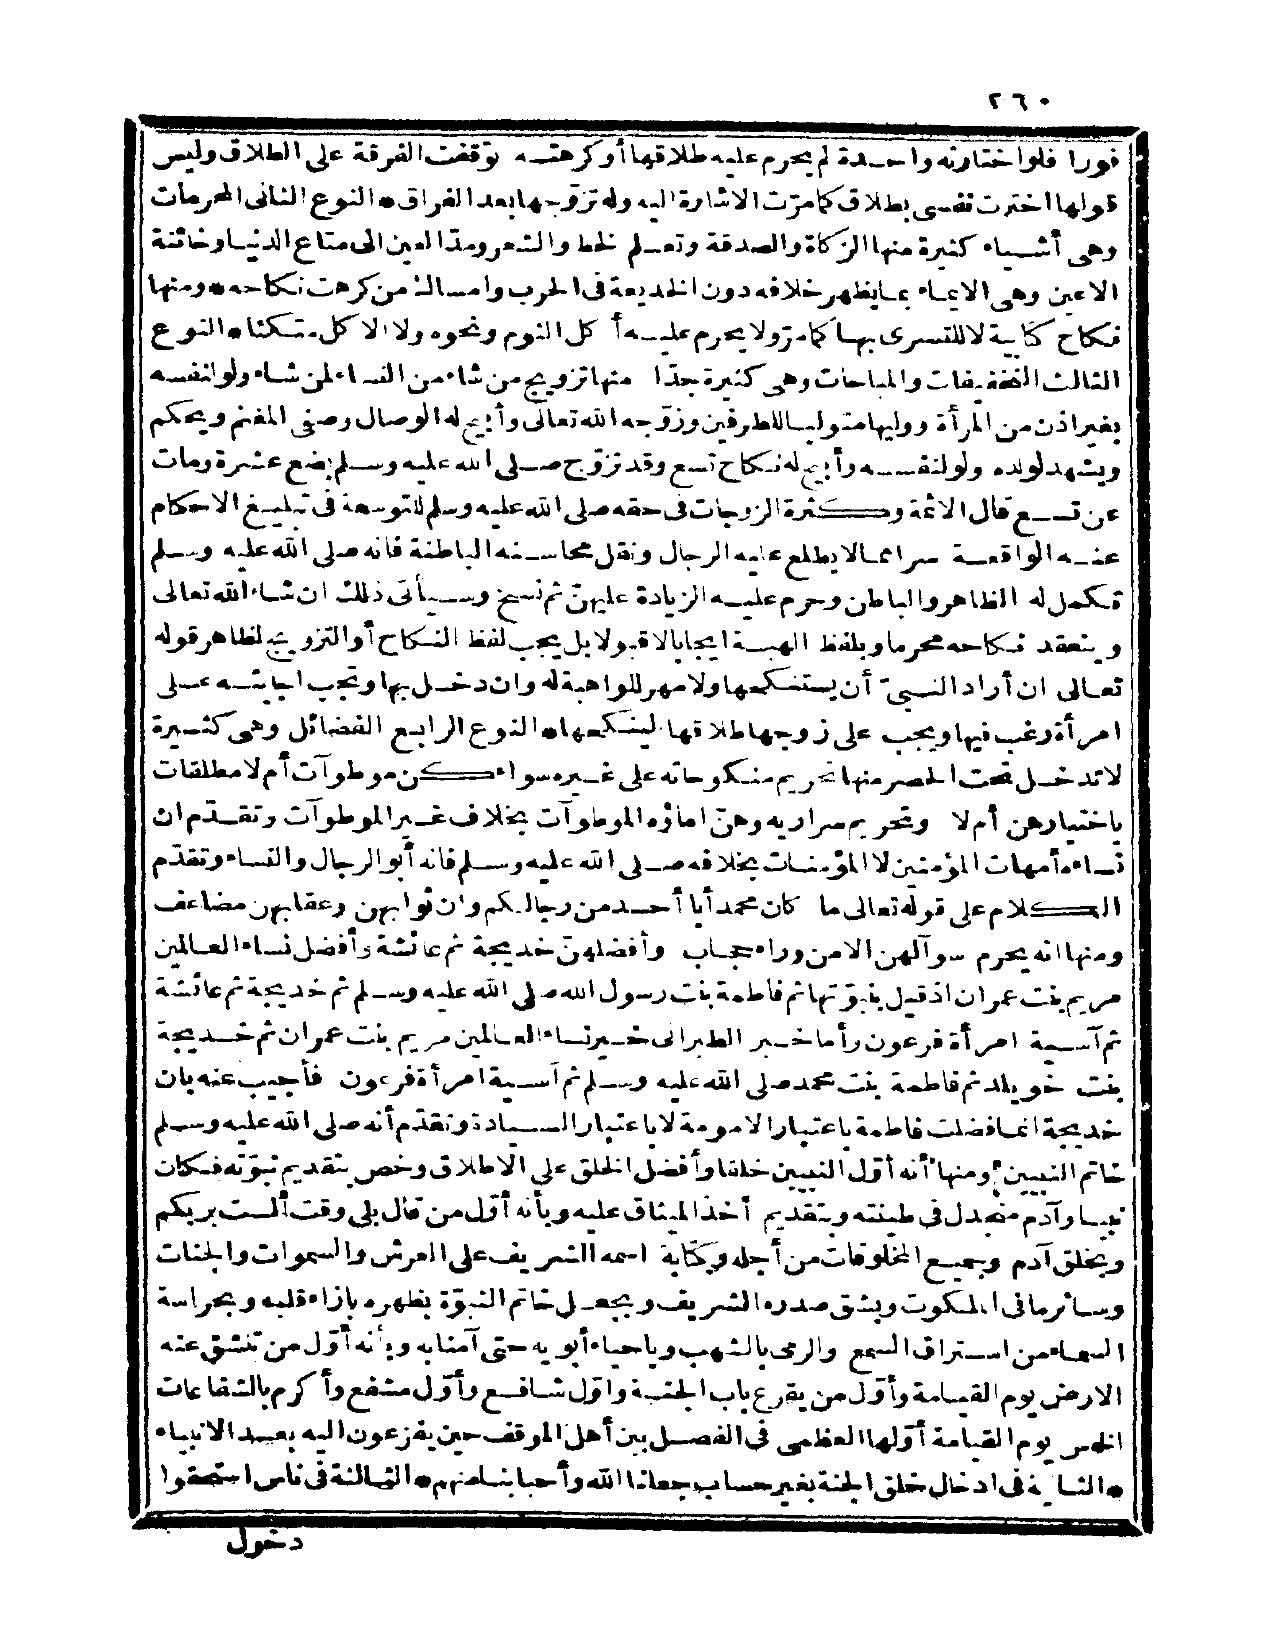 ٢٦٠
فورا فلو اختارته واحدة لم يحرم عليه طلاقها أو كرهته توقفت الفرقة على الطلاق وليس
قولها اخترت نفسى بطلاق كما مرّت الاشارة اليه وله تزوّجها بعد الفراق * النوع الثانى المحرمات
وهى أشياء كثيرة منها الزكاة والصدقة وتعلم الخط والشعر ومدّ العين الى متاع الدنيا وخائنة
الاعين وهى الايماء بما يظهر خلافه دون الخديعة فى الحرب وامساك من كرهت نكاحه * ومنها
نكاح كتابية لا للتسرى بها كما مرّ ولا يحرم عليه أكل الثوم ونحوه ولا الاكل متكئا * النوع
الثالث التخفيفات والمباحات وهى كثيرة جدّا منها تزويج من شاء من النساء لمن شاء ولو لنفسه
بغير اذن من المرأة ووليها متوليا للطرفين وزوّجه الله تعالى وأبيح له الوصال وصفىّ المغنم ويحكم
ويشهد لولده ولو لنفسه وأبيح له نكاح تسع وقد تزوّج صلى الله عليه وسلم بضع عشرة ومات
عن تسع قال الائمة وكثرة الزوجات فى حقه صلى الله عليه وسلم للتوسعة فى تبليغ الاحكام
عنه الواقعة سرا مما لا يطلع عليه الرجال ونقل محاسنه الباطنة فانه صلى الله عليه وسلم
تكمل له الظاهر والباطن وحرم عليه الزيادة عليهنّ ثم نسخ وسيأتى ذلك ان شاء الله تعالى
وينعقد نكاحه محرما وبلفظ الهبة ايجابا لا قبولا بل يجب لفظ النكاح أو التزويج لظاهر قوله
تعالى ان أراد النبىّ أن يستنكحها ولا مهر للواهبة له وان دخل بها وتجب اجابته على
امرأة رغب فيها ويجب على زوجها طلاقها لينكحها * النوع الرابع الفضائل وهى كثيرة
لا تدخل تحت الحصر منها تحريم منكوحاته على غيره سواء كن موطوآت أم لا مطلقات
باختيارهن أم لا وتحريم سراريه وهنّ اماؤه الموطوآت بخلاف غير الموطوآت وتقدّم ان
نساءه أمهات المؤمنين لا المؤمنات بخلافه صلى الله عليه وسلم فانه أبو الرجال والنساء وتقدّم
الكلام على قوله تعالى ما كان محمد أبا أحد من رجالكم وان ثوابهن وعقابهن مضاعف
ومنها انه يحرم سوآلهن الا من وراء حجاب وأفضلهنّ خديجة ثم عائشة وأفضل نساء العالمين
مريم بنت عمران اذ قيل بنبوّتها ثم فاطمة بنت رسول الله صلى الله عليه وسلم ثم خديجة ثم عائشة
ثم آسية امرأة فرعون وأما خبر الطبرانى خير نساء العالمين مريم بنت عمران ثم خديجة
بنت خويلد ثم فاطمة بنت محمد صلى الله عليه وسلم ثم آسية امرأة فرعون فأجيب عنه بان
خديجة انما فضلت فاطمة باعتبار الامومة لا باعتبار السيادة وتقدّم أنه صلى الله عليه وسلم
خاتم النبيين ومنها أنه أوّل النبيين خلقا وأفضل الخلق على الاطلاق وخص بتقديم نبوّته فكان
نبيا وآدم منجدل فى طينته وبتقديم أخذ الميثاق عليه وبأنه أوّل من قال بلى وقت ألست بربكم
وبخلق آدم وجميع المخلوقات من أجله وبكتابة اسمه الشريف على العرش والسموات والجنات
وسائر ما فى الملكوت وبشق صدره الشريف وبجعل خاتم النبوّة بظهره بازاء قلبه وبحراسة
السماء من استراق السمع والرمى بالشهب وباحياء أبويه حتى آمنا به وبأنه أوّل من تنشق عنه
الارض يوم القيامة وأوّل من يقرع باب الجنة وأوّل شافع وأوّل مشفع وأكرم بالشفاعات
الخمس يوم القيامة أوّلها العظمى فى الفصل بين أهل الموقف حين يفزعون اليه بعد الانبياء
* الثانية فى ادخال خلق الجنة بغير حساب جعلنا الله وأحبابنا منهم * الثالثة فى ناس استحقوا
دخول